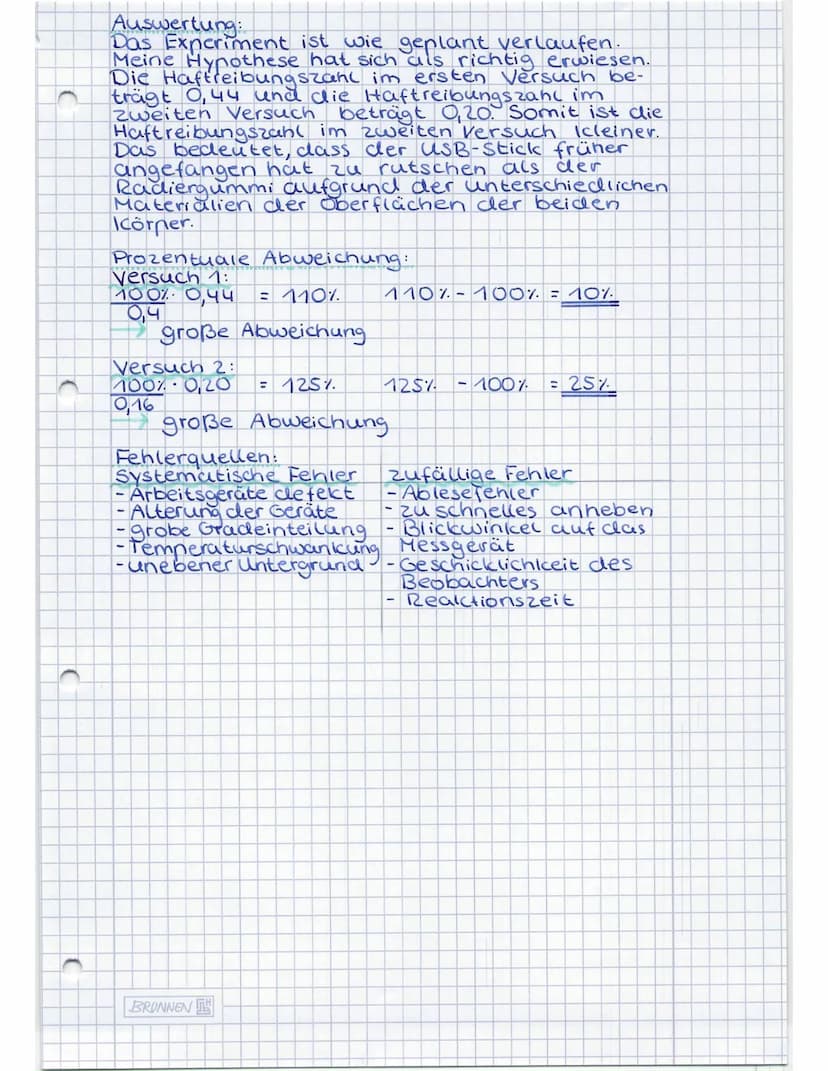 Auswertung:
Das Experiment ist wie geplant verlaufen.
Meine Hypothese hat sich als richtig erwiesen.
Die Haftreibungszahl im ersten Versuch be-
trägt 0,44 und die Haftreibungszahl im
zweiten Versuch beträgt 0,20. Somit ist die
Haftreibungszahl im zweiten Versuch kleiner.
Das bedeutet, dass der USB-Stick früher
angefangen hat zu rutschen als der
Radiergummi aufgrund der unterschiedlichen
Materialien der Oberflächen der beiden
Körper.
Prozentuale Abweichung:
Versuch 1:
100% · 0,44 = 110% 110% - 100% = 10%
0,4
→ große Abweichung
Versuch 2:
100% · 0,20 = 125% 125% - 100% = 25%
0,16
→ große Abweichung
Fehlerquellen:
Systematische Fehler
- Arbeitsgeräte defekt
- Alterung der Geräte
- grobe Gradeinteilung
- Temperaturschwankung
- unebener Untergrund
zufällige Fehler
- Ablesefehler
- zu schnelles anheben
- Blickwinkel auf das
Messgerät
- Geschicklichkeit des
Beobachters
- Reaktionszeit
BRUNNEN